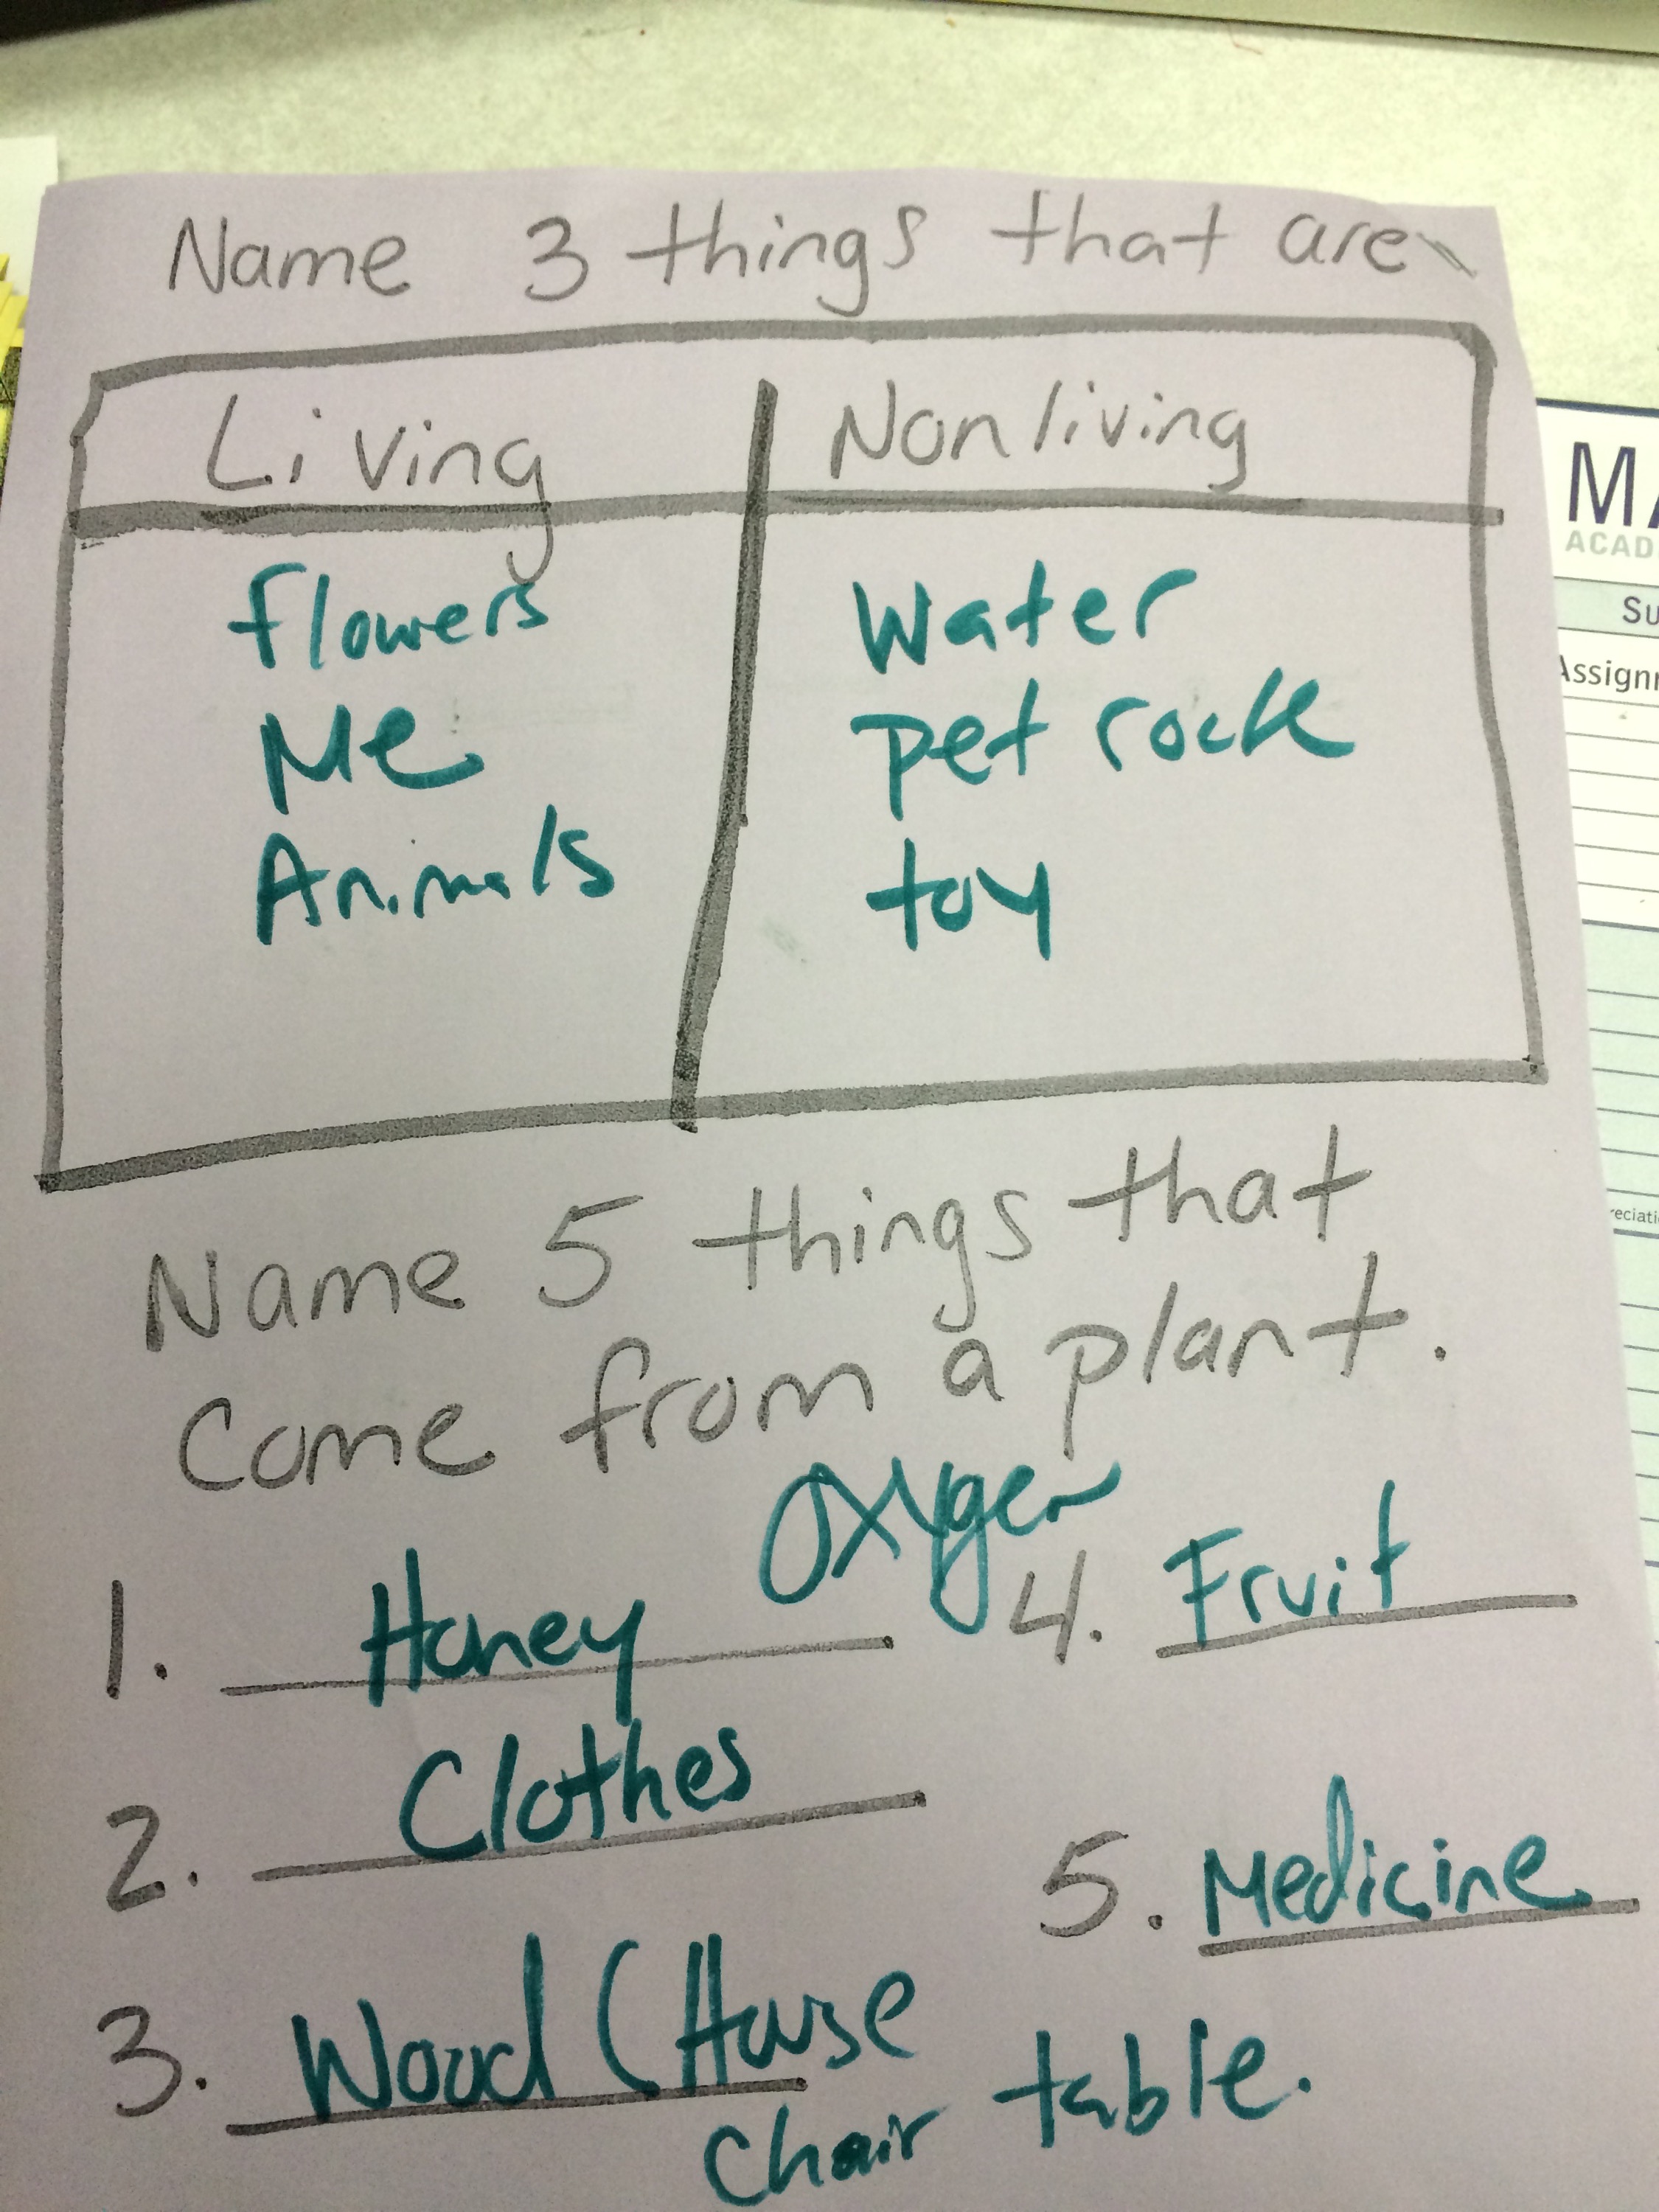 Name 3 things that are
Living
Nonliving
flowers
Me
Animals
Water
pet rock
toy
Name 5 things that
Come from a plant.
Oxygen
1. Honey
2. Clothes
3. Wood (House
Chair table.
4. Fruit
5. Medicine
MA
ACAD
Su